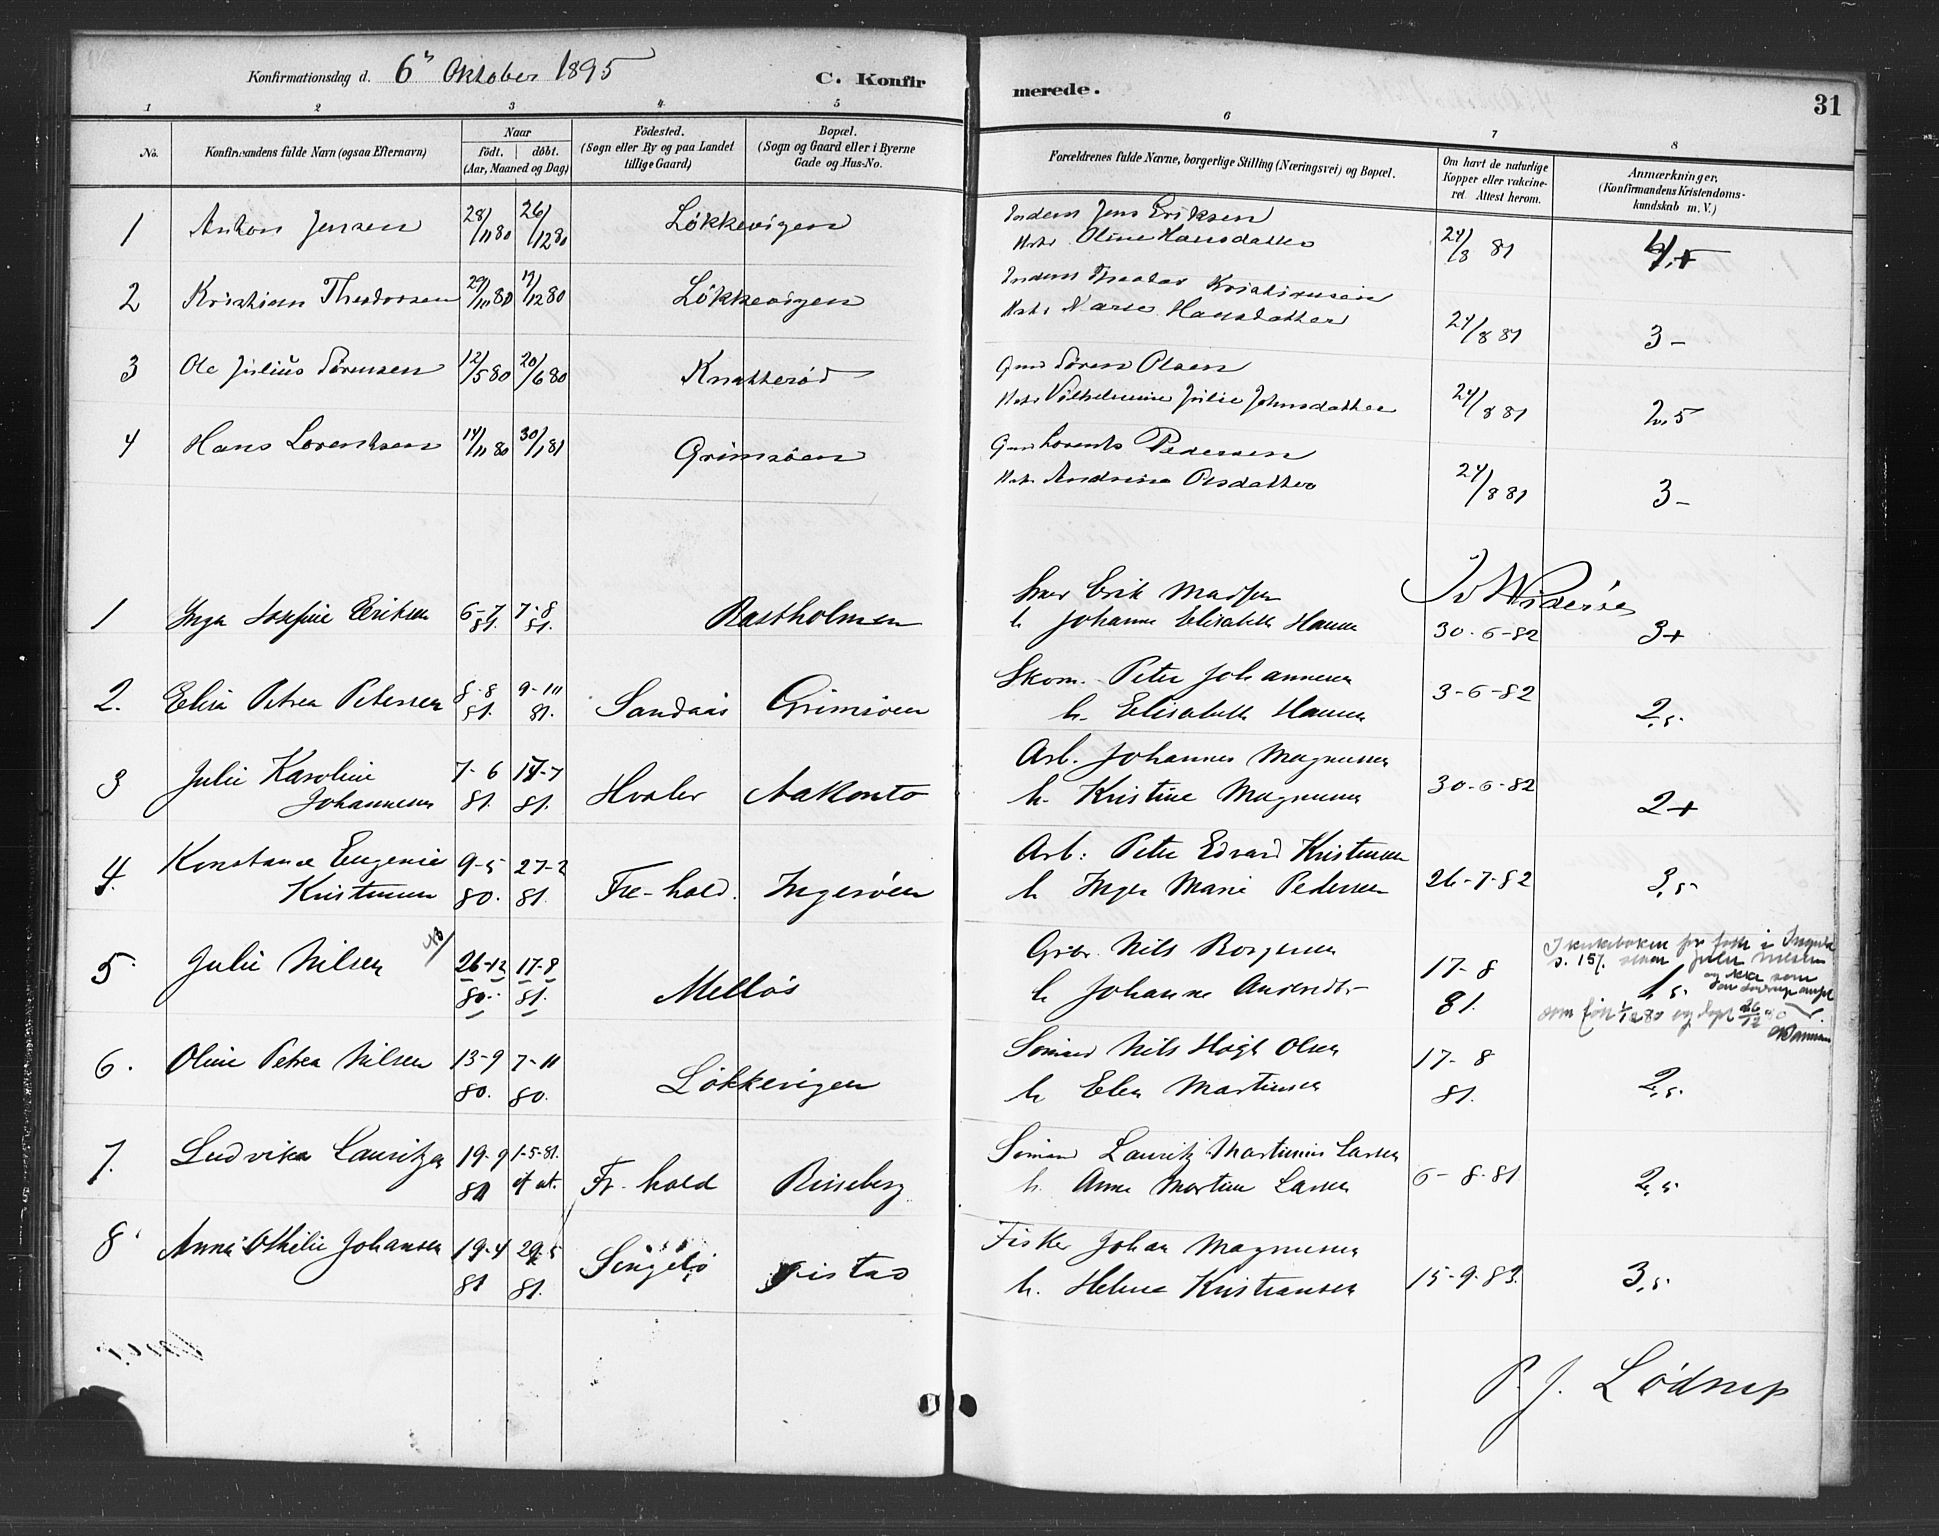 Konfirmationsdag d. 6 Oktober 1895 C. Konfirmerede. 31
1 2 3 4 5 6 7 8
No. Konfirmandens fulde Navn (ogsaa Efternavn) Naar födt. döbt. (Aar, Maaned og Dag) Födested. (Sogn eller By og paa Landet tillige Gaard) Bopæl. (Sogn og Gaard eller i Byerne Gade og Hus-No. Forældrenes fulde Navne, borgerlige Stilling (Næringsvei) og Bopæl. Om havt de naturlige Kopper eller vakcineret. Attest herom. Anmærkninger, (Konfirmandens Kristendomskundskab m. V.)
1 Anton Jensen 28/11 80 26/12 80 Løkkevigen Inderst Jens Eriksen
Oline Hansdatter 24/8 81
2 Kristian Theodorsen 29/11 80 19/12 80 Løkkevigen Inderst Kristiansen
Hansdatter 24/8 81 3 -
3 Ole Julius Sörensen 12/5 80 20/6 80 Knatteröd Gmd Sören Olsen
Vilhelmine Julie Johnsdatter 24/8 81 2,5
4 Hans Lorentsen 14/11 80 30/1 81 Grimsöen Gmd Lorents Pedersen
Andrine Olsdatter 24/8 81 3 -
1 Inga Josefine Eriksen 6-7 81. 7-8 81. Rastholmen Erik Madsen
h. Johanne Elisabeth Hansen 30-6-82 3+
2. Elise Petrea Petersen 8-8 81. 9-10 81. Sandaas Grimsöen Skom. Peter Johannesen
h. Elisabeth Hansen 3-6-82 2,5
3 Julie Karoline Johannesen 7-6 81. 17-7 81. Hvaler Aakonto Arb. Johannes Magnussen
h. Kristine Magnussen 30-6-82 2+
4. Konstanse Eugenie Kristensen 9-5 80. 27-2 81. Fre-hald. Ingeröen Arb: Peter Edvard Kristensen
h. Inger Marie Pedersen 26-7-82 3,5
5 Julie Nilsen 26-12 80. 17-8 81. Melløs Grbr. Nils Borgersen
h. Johanne Andersdtr 17-8 81.
s. 157. Julie Nilsen
og ikke som
som født og døpt 26/12 80
6. Oline Petrea Nilsen 13-9 80. 7-11 80. Løkkevigen Sömand Nils Høgh Olsen
h. Elen Martinsen 17-8 81. 2,5
7. Ludvika Lauritzen 19-9 80 1-5-81. Fr-hald Risseberg Sömand Lauritz Martinius Larsen
h. Anne Martine Larsen 6-8-81 2,5
8 Anna Othilie Johansen 19-4 81 29-5 81. Singelö Gistad Fisker Johan Magnussen
h. Helene Kristiansen 15-9-83. 3,5
P. J. Lødrup